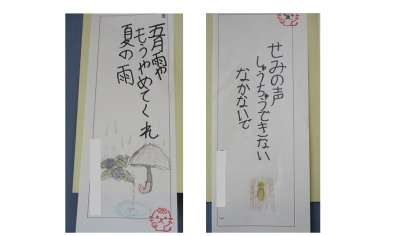 五月雨や
もうやめてくれ
夏の雨
せみの声
しゅうちゅうできない
なかないで